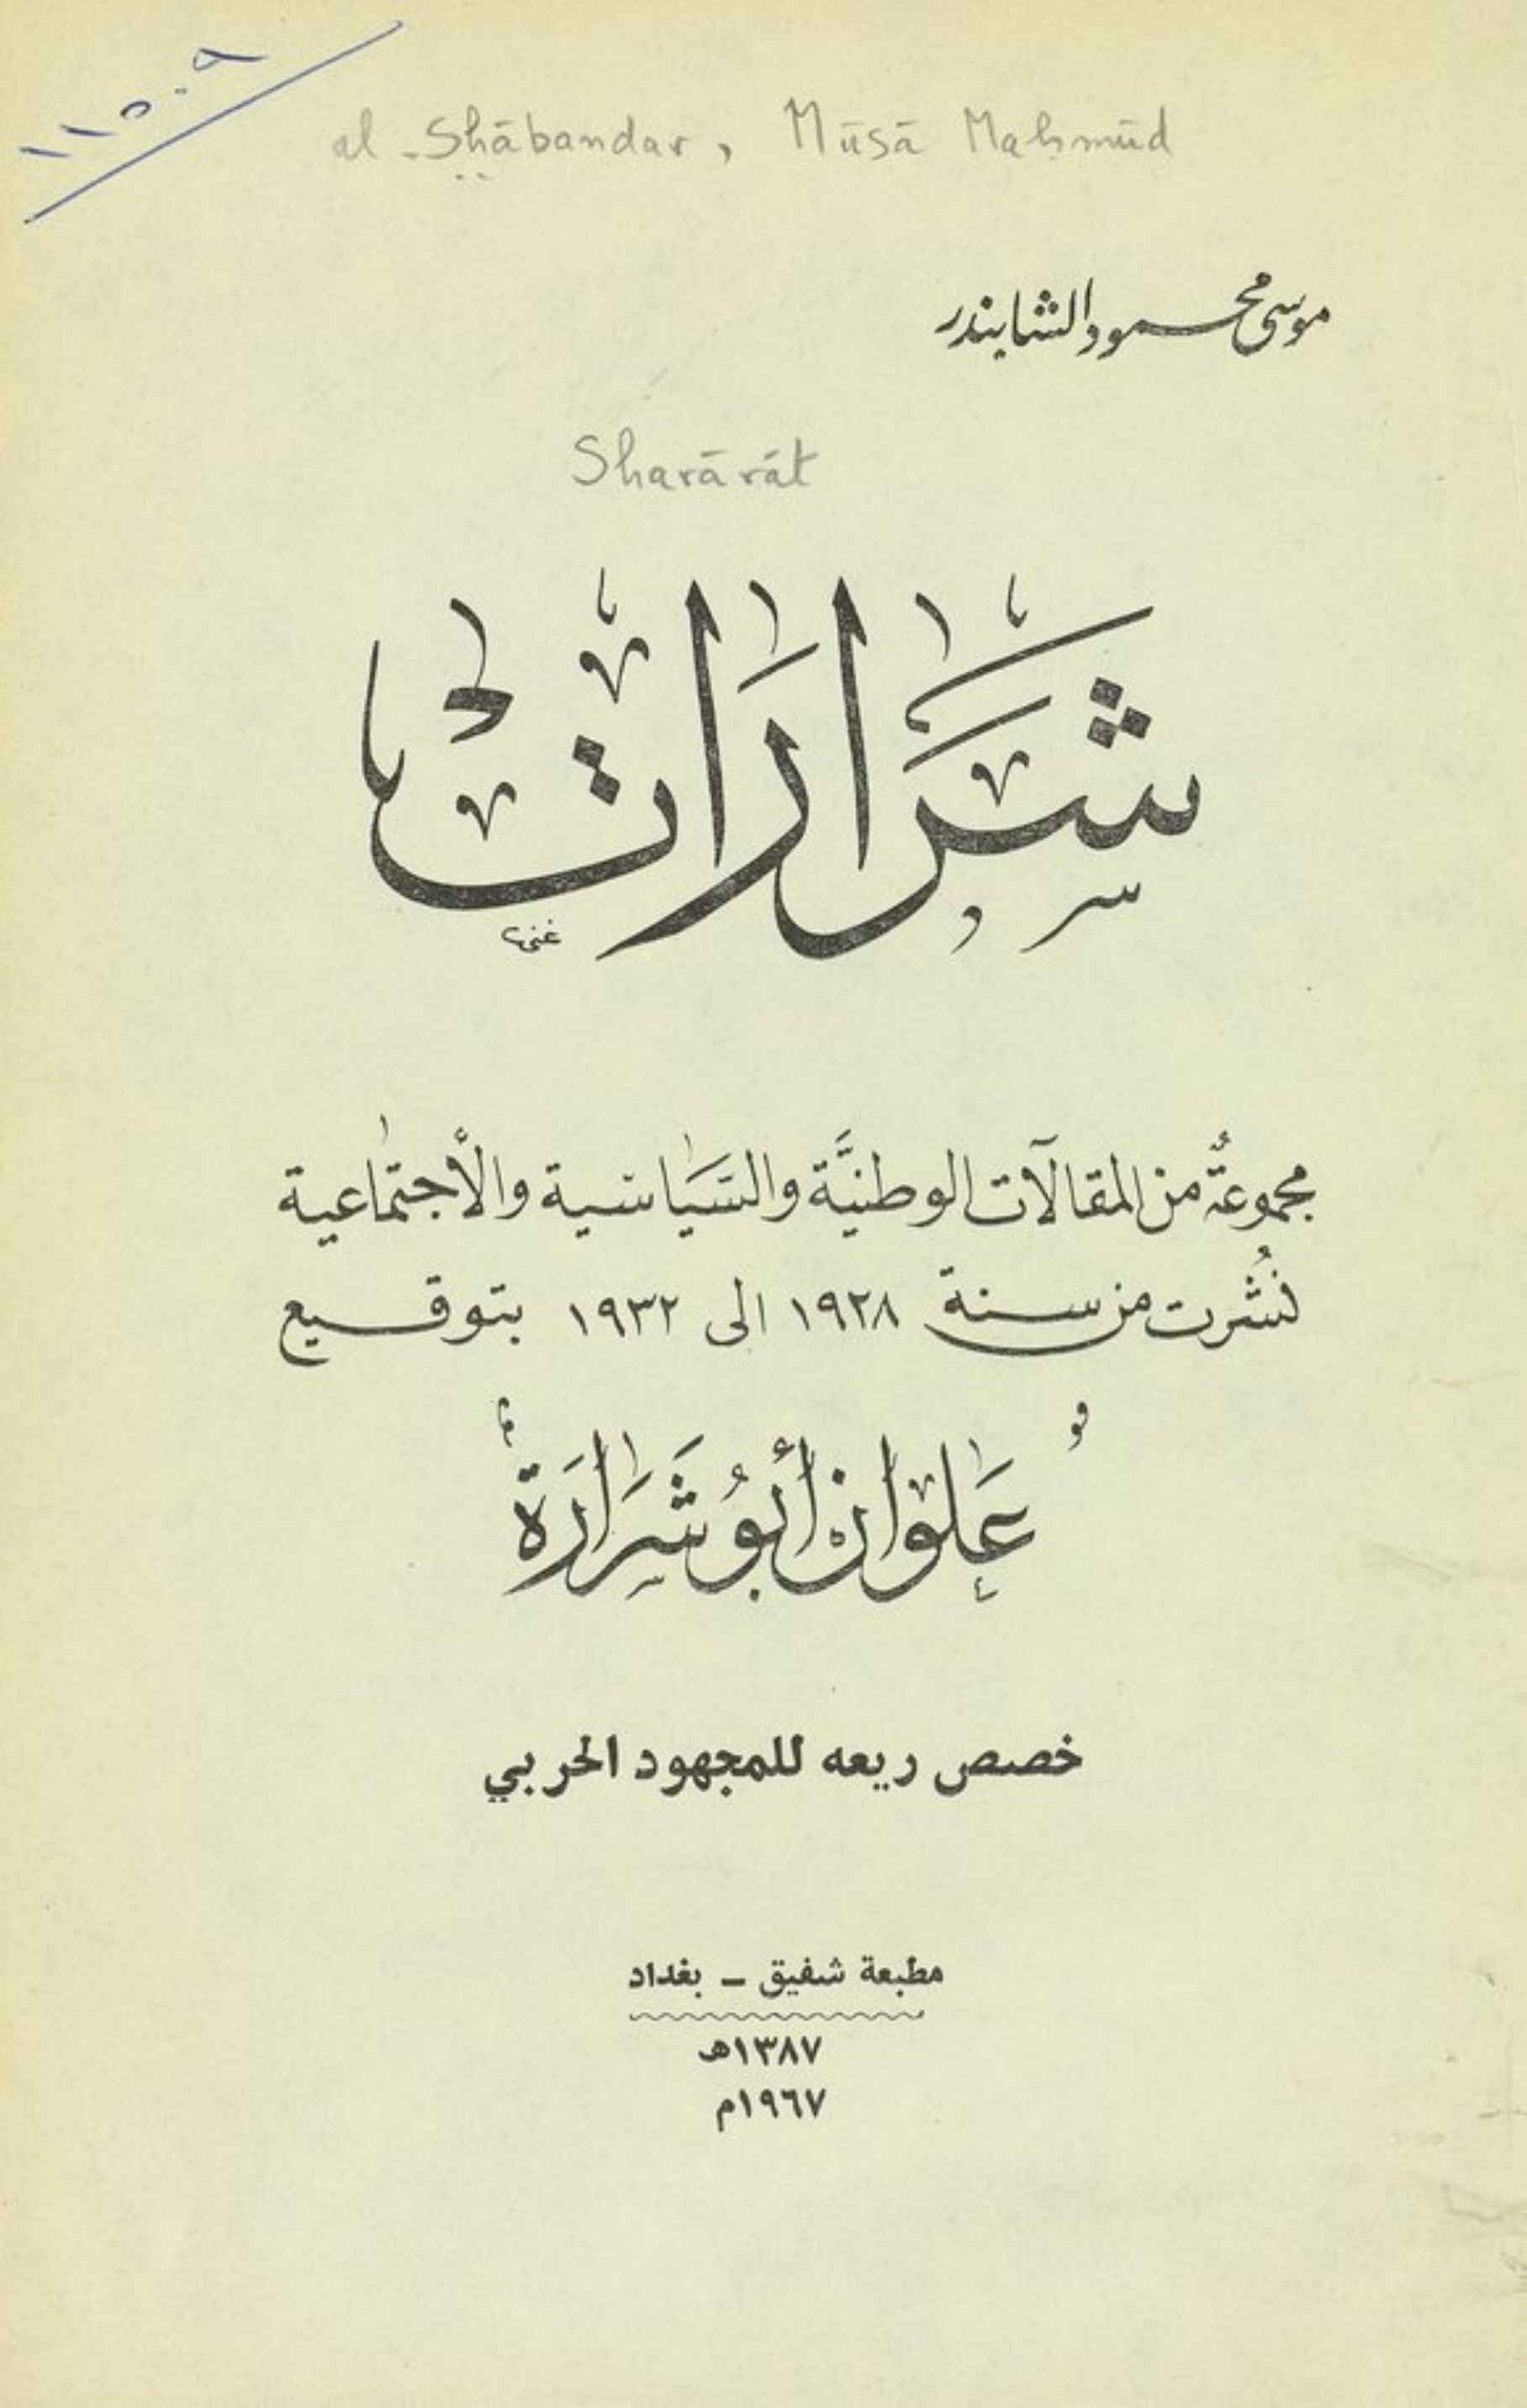 ١١٥٠٩
al-Shābandar, Mūsā Maḥmūd
موسى محمود الشابندر
Sharārāt
شَرَارَات
غني
مجموعةٌ من المقالآت الوطنيَّة والسَّيَاسية والأجتماعية
نُشرت من سنة ١٩٢٨ الى ١٩٣٢ بتوقيع
"عَلوان أبوُ شَرَارَة"
خصص ريعه للمجهود الحربي
مطبعة شفيق - بغداد
١٣٨٧هـ
١٩٦٧م